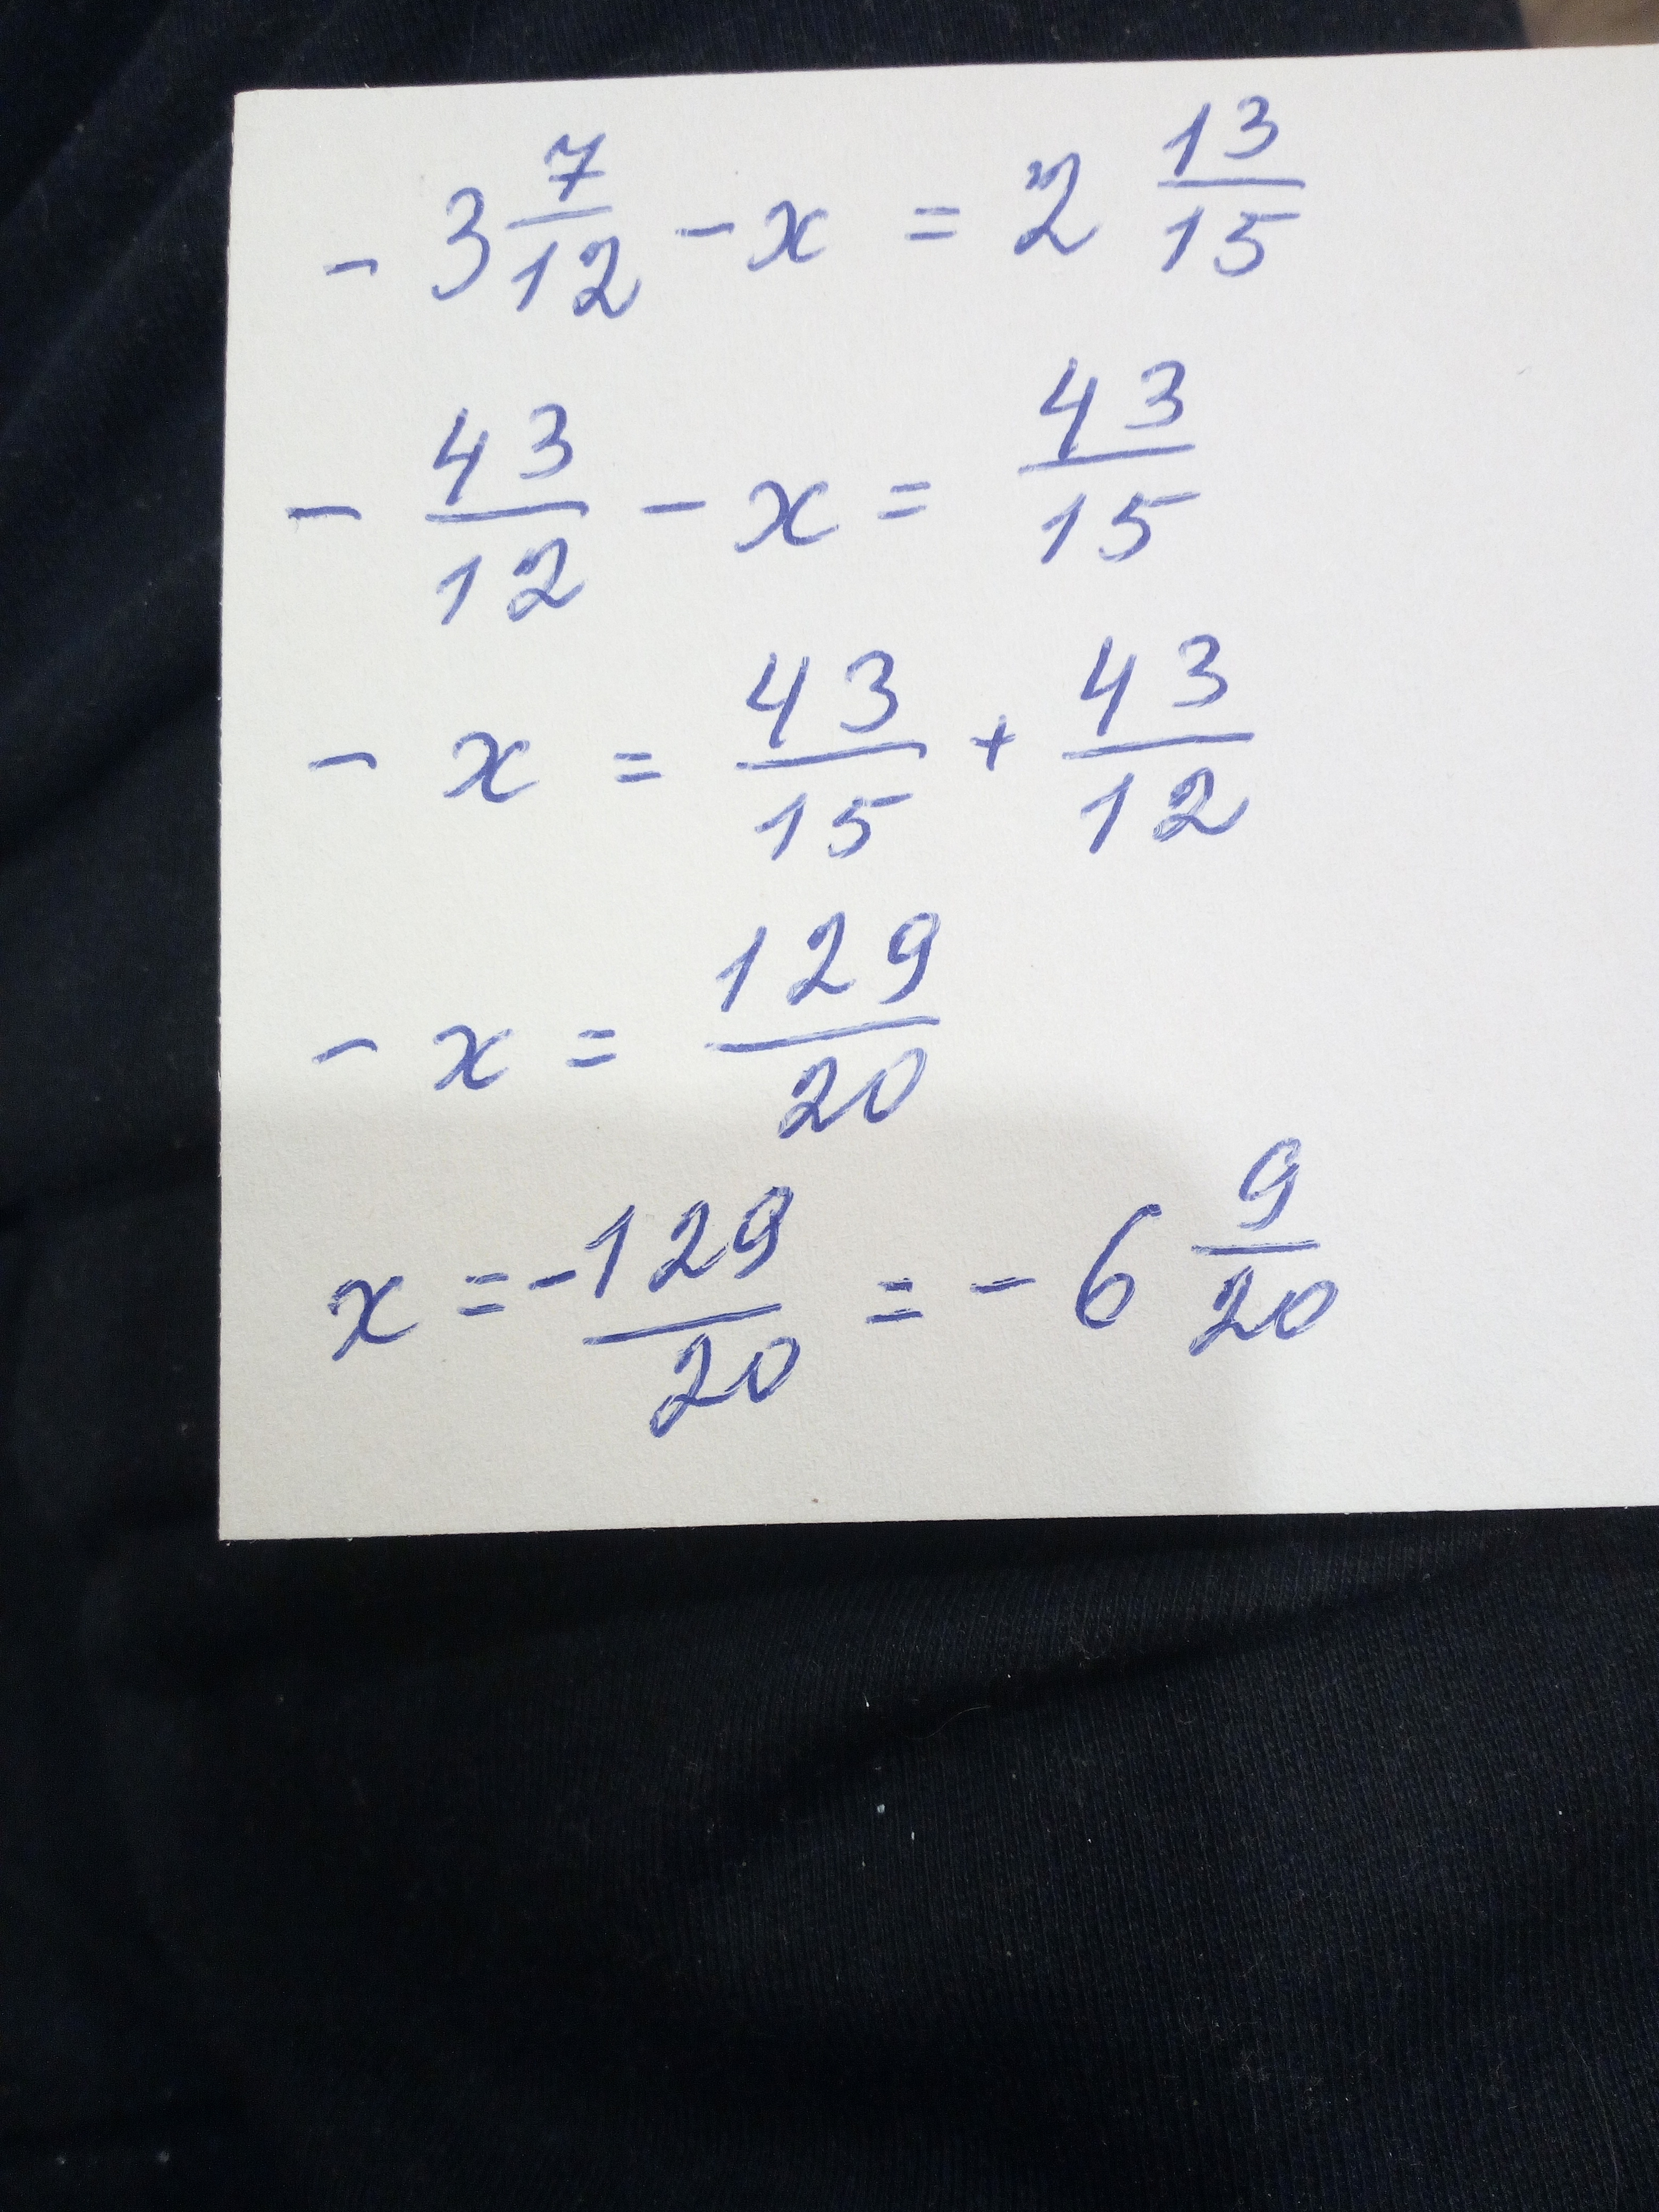 - 3 7/12 - x = 2 13/15
- 43/12 - x = 43/15
- x = 43/15 + 43/12
- x = 129/20
x = - 129/20 = - 6 9/20